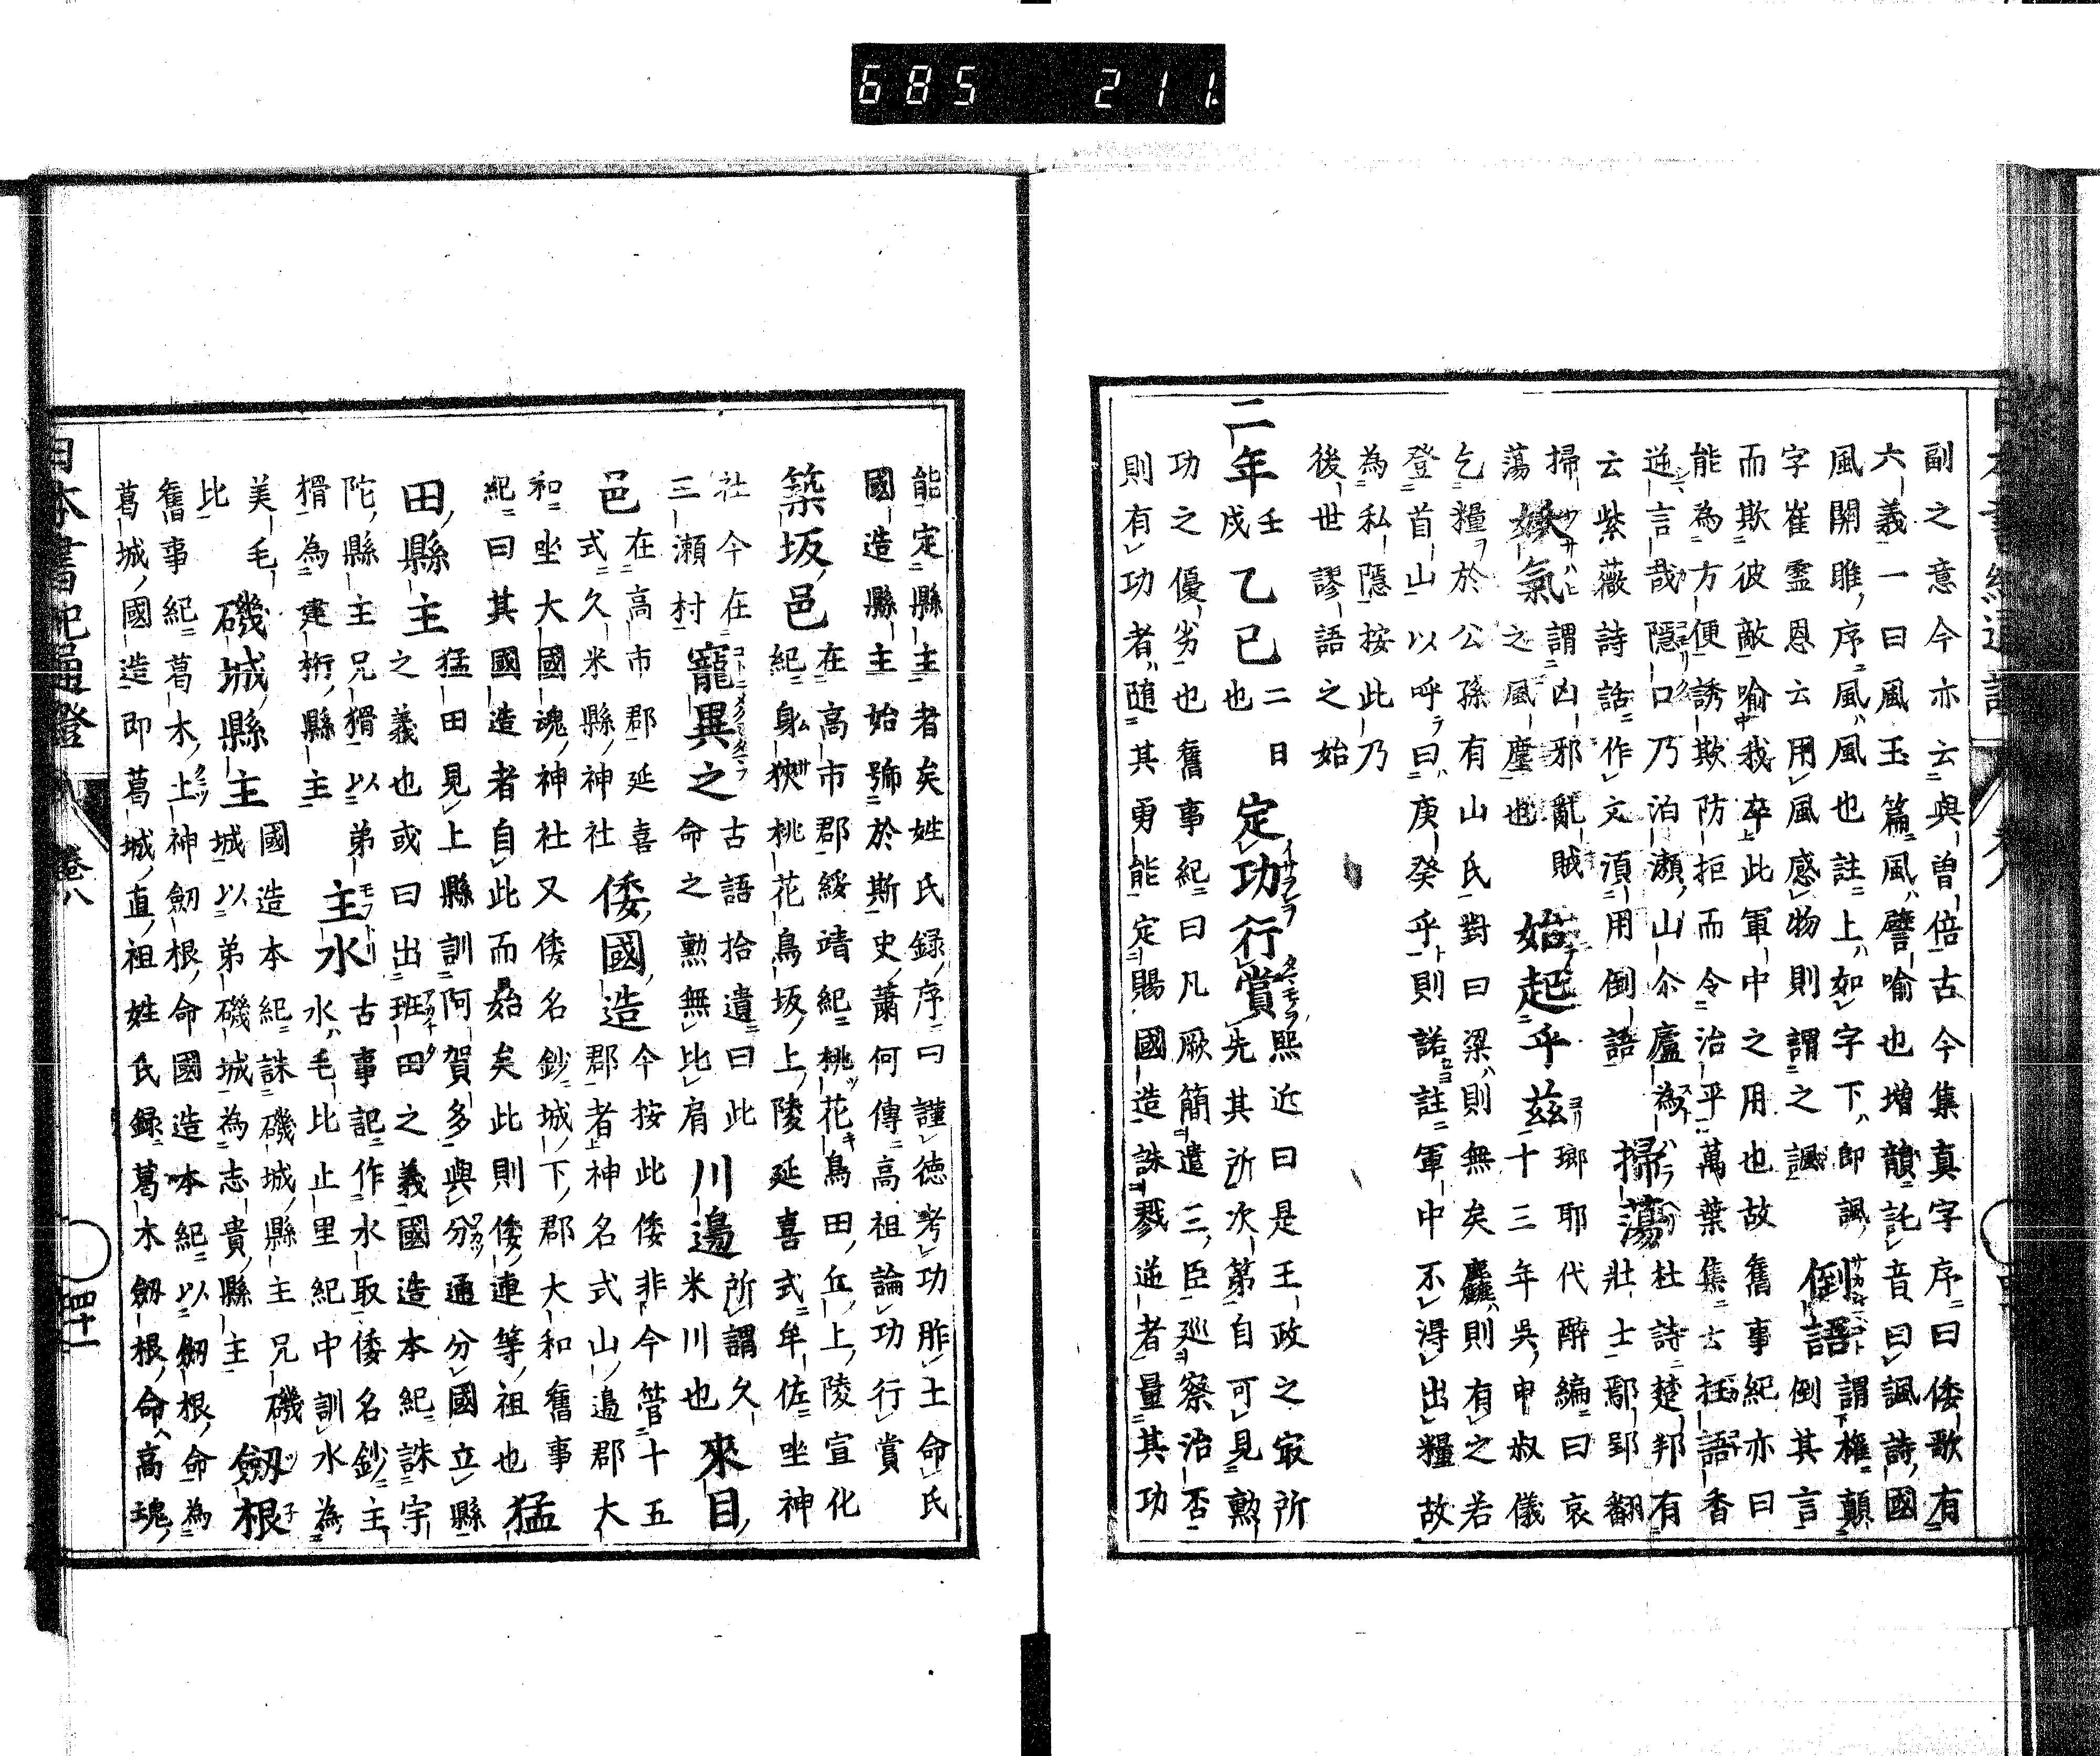 685 211
副之意今亦云與曽倍古今集真字序曰倭歌有
六義一曰風玉篇風譬喻也増韻託音曰諷詩國
風關雎序風風也註上如字下即諷 倒語 謂權顛
字崔靈恩云用風感物則謂之諷 倒其言
而欺彼敵喻我卒此軍中之用也故舊事紀亦曰
能為方便誘欺防拒而令治平萬葉集云狂語香
逆言哉隱口乃泊瀨山尒廬為 掃蕩 杜詩楚邦有
云紫薇詩話作文湏用倒語 壯士鄢郢翻
掃 妖氣 謂凶邪亂賊 始起乎茲 瑯耶代醉編曰哀
蕩 之風塵也 十三年吳申叔儀
乞糧於公孫有山氏對曰粱則無矣麤則有之若
登首山以呼曰庚癸乎則諾註軍中不得出糧故
為私隱按此乃
後世謬語之始
二年 壬戌 乙巳 二日也 定功行賞 熙近曰是王政之最所
先其所次第自可見勲
功之優劣也舊事紀曰凡厥簡遣三臣巡察治否
則有功者随其勇能定賜國造誅戮逆者量其功
能定縣主者矣姓氏録序曰謹德考功胙土命氏
國造縣主始號於斯史蕭何傳高祖論功行賞
築坂邑 在高市郡綏靖紀桃花鳥田丘上陵宣化
紀身狹桃花鳥坂上陵延喜式牟佐坐神
社今在 寵異之 古語拾遺曰此 川邊 所謂久 來目
三瀬村 命之勲無比肩 米川也
邑 在高市郡延喜 倭國造 今按此倭非今管十五
式久米縣神社 郡者神名式山邊郡大
和坐大國魂神社又倭名鈔城下郡大和舊事
紀曰其國造者自此而始矣此則倭連等祖也 猛
田縣主 猛田見上縣訓阿賀多與分通分國立縣
之義也或曰出班田之義國造本紀誅宇
陀縣主兄猾以弟 主水 古事記作水取倭名鈔主
猾為建桁縣主 水毛比止里紀中訓水為
美毛 磯城縣主 國造本紀誅磯城縣主兄磯 劔根
比 城以弟磯城為志貴縣主
舊事紀葛木上神劔根命國造本紀以劔根命為
葛城國造即葛城直祖姓氏録葛木劔根命高魂
日本書紀通證 卷八 四十一